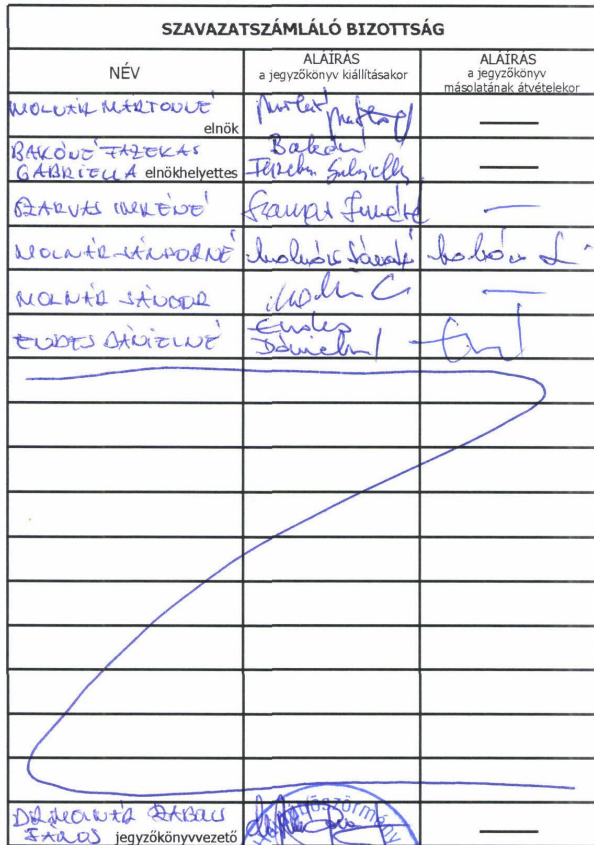 SZAVAZATSZÁMLÁLÓ BIZOTTSÁG
NÉV
ALÁÍRÁS
a jegyzőkönyv kiállításakor
ALÁÍRÁS
a jegyzőkönyv
másolatának átvételekor
MOLNÁR MÁRTONNÉ
elnök
BAKÓNÉ FAZEKAS
GABRIELLA elnökhelyettes
Bakóné
SZARVAS IMRÉNÉ
Szarvas Imréné
MOLNÁR SÁNDORNÉ
MOLNÁR SÁNDOR
ENDES DÁNIELNÉ
Endes
DR. MOLNÁR SZABOLCS
jegyzőkönyvvezető